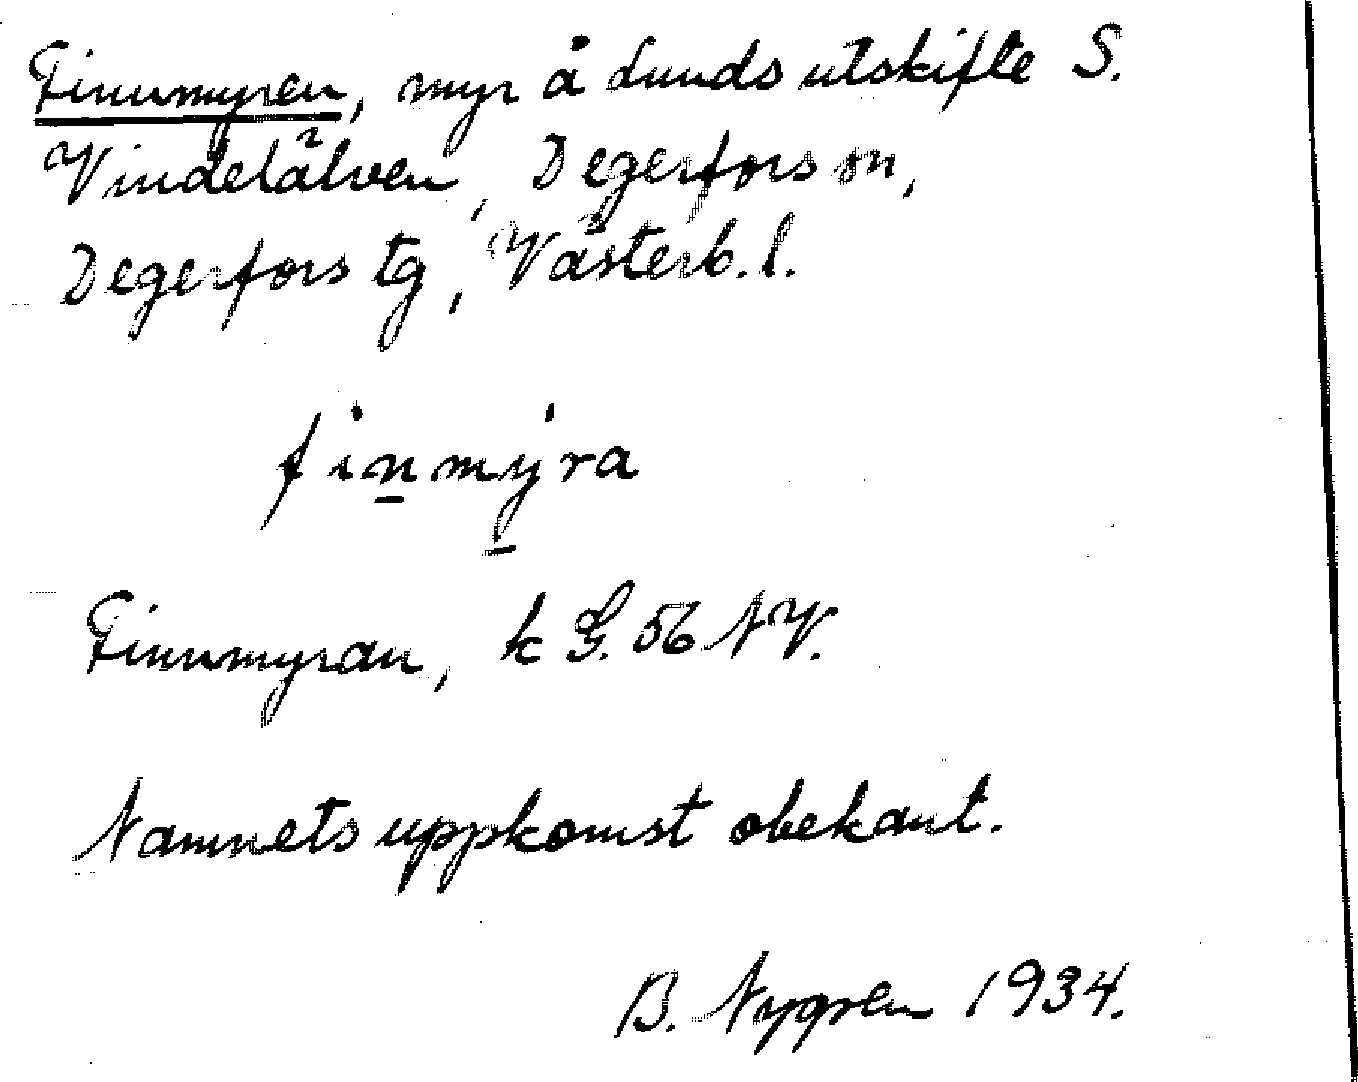 Finnmyren, myr å Lunds utskifte S.
Vindelälven, Degerfors sn,
Degerfors tg, Västerb. l.
finmyra
Finnmyran, k G. 56 NV.
Namnets uppkomst obekant.
B. Nygren 1934.